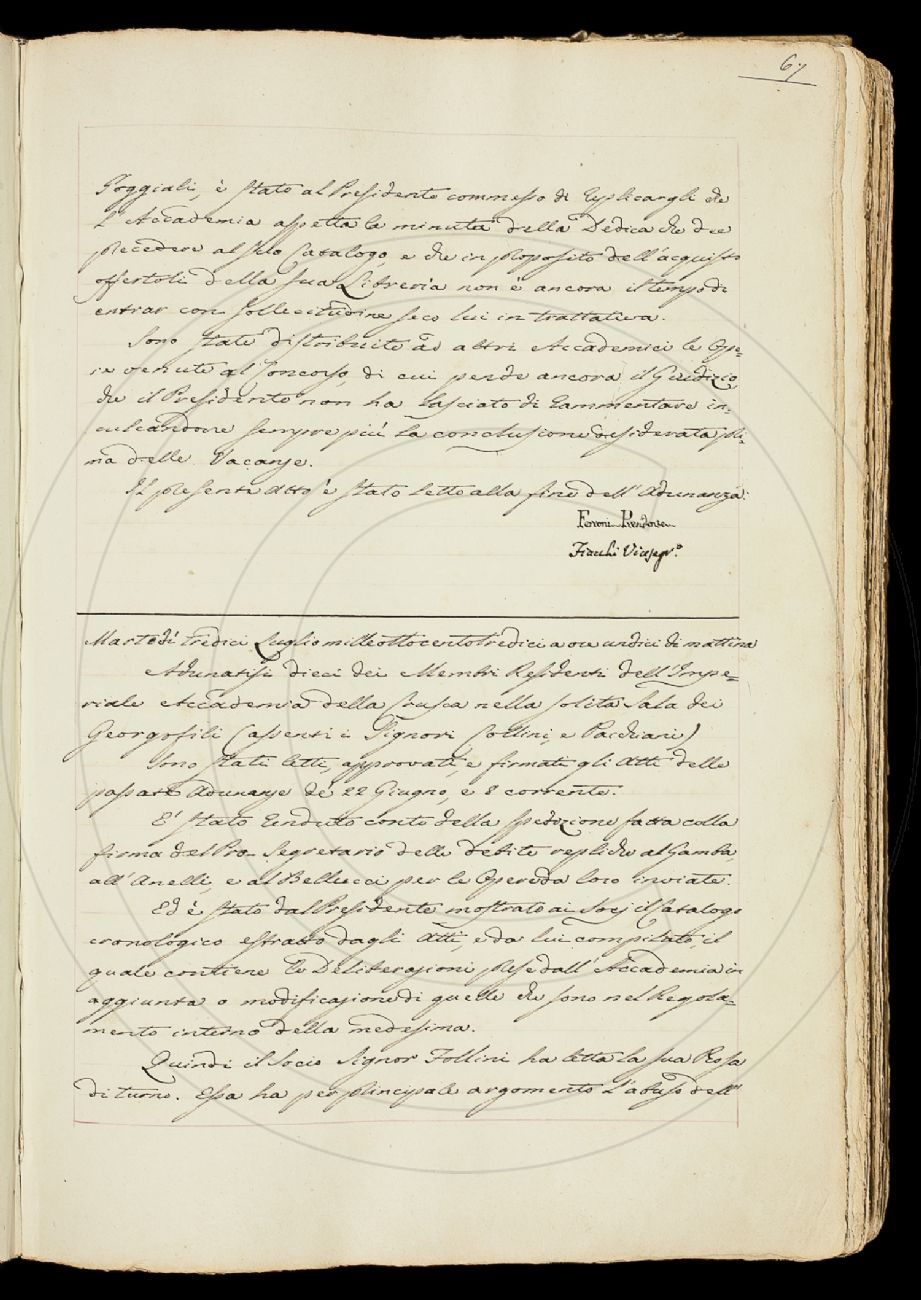 67
Poggiali, è stato al Presidente commesso di replicargli che
l'Accademia aspetta la minuta della Dedica che dee
precedere al suo Catalogo, e che in proposito dell'acquisto
offertoli della sua Libreria non è ancora il tempo di
entrar con sollecitudine seco lui in trattativa.
Sono state distribuite ad altri Accademici le Ope=
re venute al Concorso, di cui pende ancora il Giudizio,
che il Presidente non ha lasciato di rammentare in=
culcandone sempre più la conclusione desiderata pri=
ma delle Vacanze.
Il presente Atto è stato letto alla fine dell'Adunanza.
Ferroni Presidente
Fiacchi Vicesegr.º
Martedì tredici Luglio milleottocentotredici a ore undici di mattina
Adunatisi dieci dei Membri Residenti dell'Impe=
riale Accademia della Crusca nella solita Sala dei
Georgofili (assenti i Signori Collini, e Pacchiani)
Sono stati letti, approvati, e firmati gli Atti delle
passate Adunanze de' 22 Giugno, e 8 corrente.
E' stato renduto conto della spedizione fatta colla
firma del Pro-Segretario delle debite repliche al Gamba,
all'Anelli, e al Bellucci per le Opere da loro inviate.
Ed è stato dal Presidente mostrato ai Socj il Catalogo
cronologico estratto dagli Atti, e da lui compilato, il
quale contiene le Deliberazioni prese dall'Accademia in
aggiunta o modificazione di quelle che sono nel Regola=
mento interno della medesima.
Quindi il Socio Signor Follini ha letta la sua Prosa
di turno. Essa ha per principale argomento l'abuso dell'